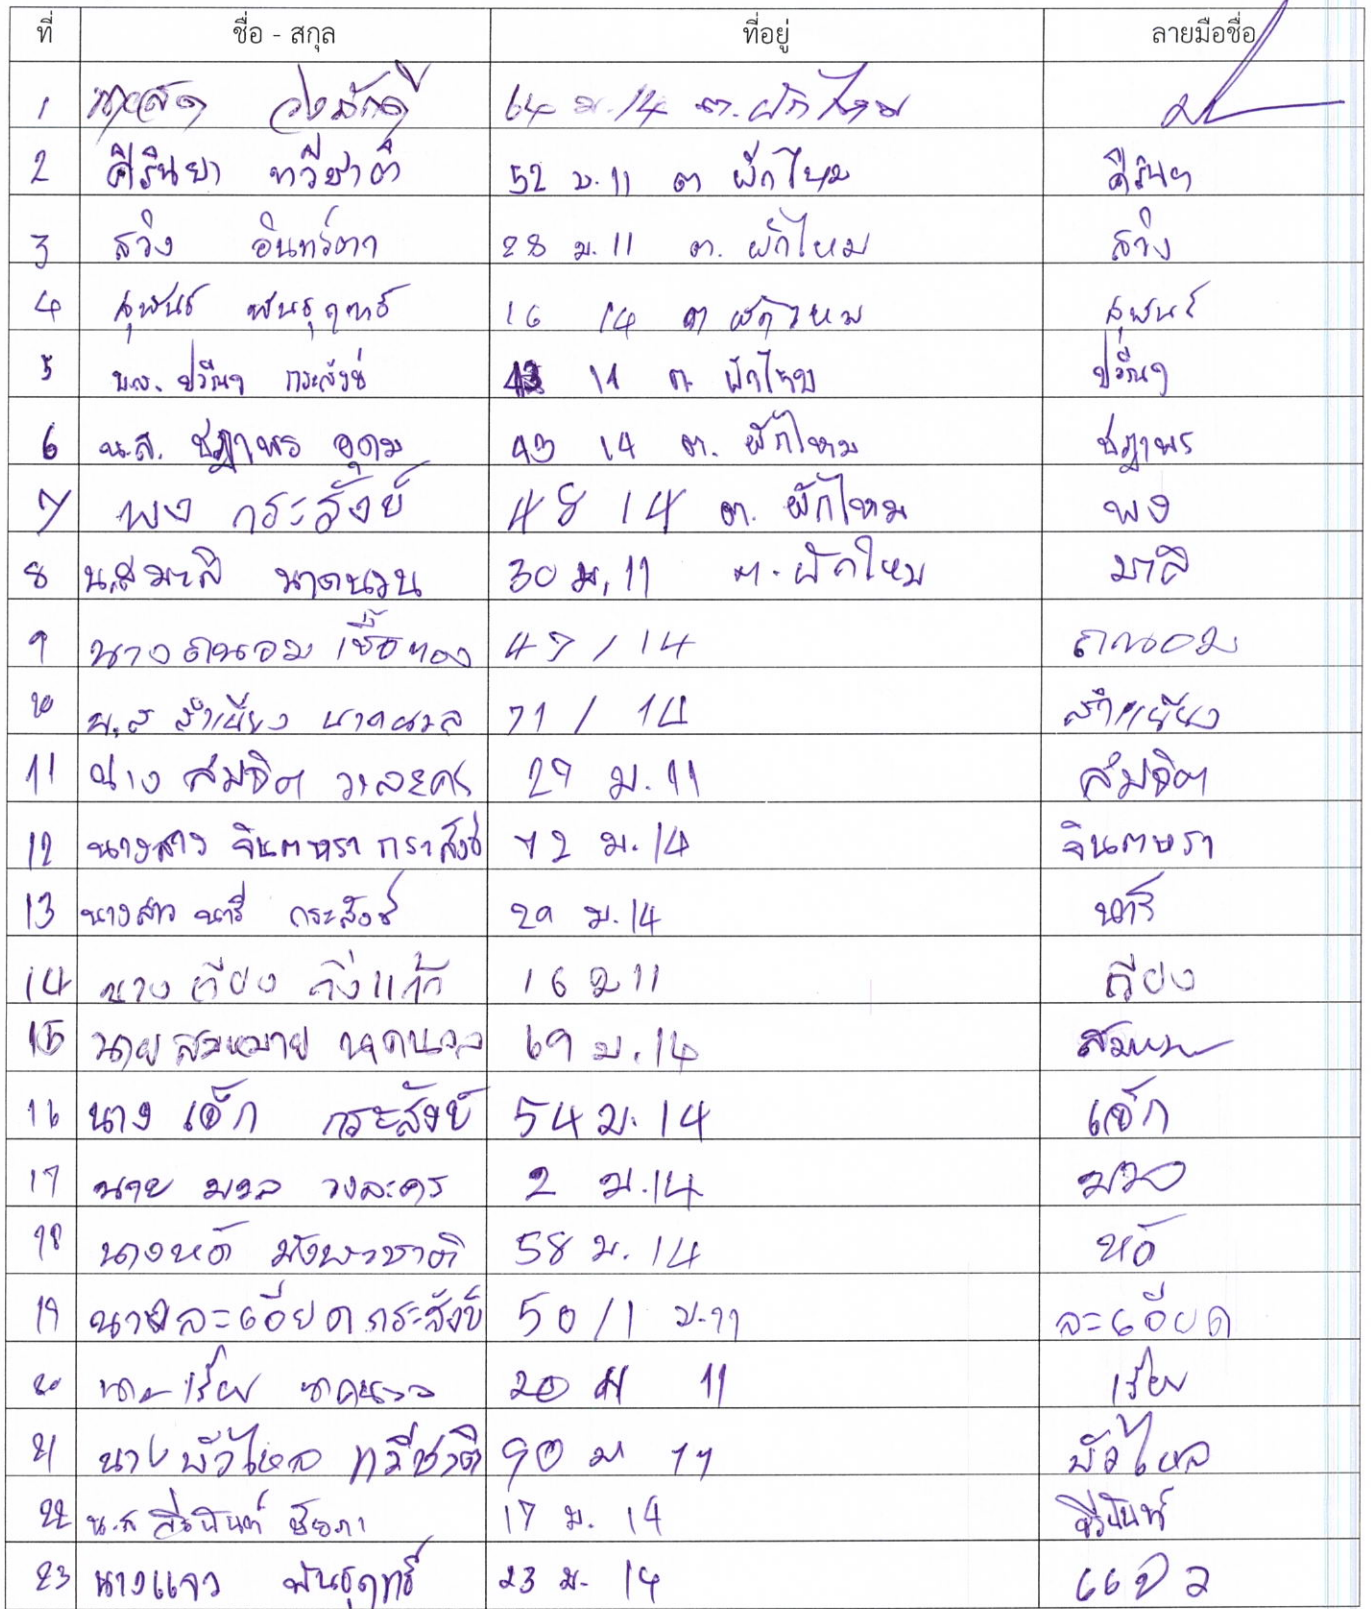 ที่ ชื่อ - สกุล ที่อยู่ ลายมือชื่อ
1 64 ม.14 ต.ผักไหม
2 ศิรินยา ทวีชาติ 52 ม.11 ต ผักไหม ศิรินยา
3 สวิง อินทร์ตา 28 ม.11 ต. ผักไหม สวิง
4 สุพันธ์ พันธุฤทธิ์ 16 14 ต ผักไหม สุพันธ์
5 น.ส. ปวีณา กระสังข์ 14 ต. ผักไหม ปวีณา
6 น.ส. ชฎาพร อุดม 43 14 ต. ผักไหม ชฎาพร
7 พง กระสังข์ 48 14 ต. ผักไหม พง
8 น.ส มาลี นาดนวน 30 ม.11 ต. ผักไหม มาลี
9 นาง ถนอม เชื้อทอง 47 / 14 ถนอม
10 น.ส สำเนียง นาดนวล 71 / 14 สำเนียง
11 นาง สมจิตา 29 ม.11 สมจิตา
12 นางสาว จินตหรา กระสังข์ 72 ม.14 จินตหรา
13 นางสาว นารี กระสังข์ 29 ม.14 นารี
14 นาง เถียง กิ่งแก้ว 16 ม 11
15 นาย สมหมาย นาดนวล 69 ม.14 สมหมาย
16 นาง เอ็ก กระสังข์ 54 ม. 14 เอ็ก
17 นาย มวล วงละคร 2 ม.14 มวล
18 นางหด 58 ม. 14
19 ละเอียด กระสังข์ 50/1 ม.11 ละเอียด
20 เรียบ นาดนวล 20 ม 11 เรียบ
21 นาง บัวไหล ทวีชาติ 90 ม 11 บัวไหล
22 น.ส 17 ม. 14
23 นางแจว พันธุฤทธิ์ 23 ม. 14 แจว